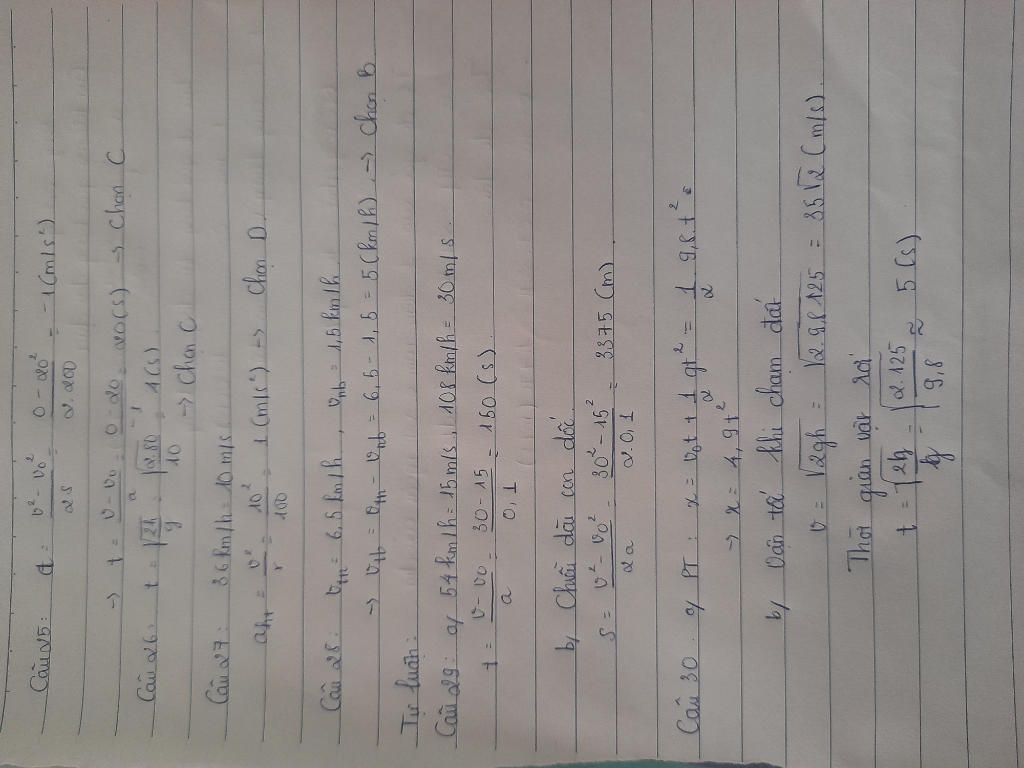 Câu 25: a = (v² - v₀²)/(2.s) = (0 - 20²)/(2.200) = -1 (m/s²)
→ t = (v - v₀)/a = (0 - 20)/(-1) = 20 (s) → chọn C
Câu 26: t = √(2h/g) = √(2.80/10) = 1 (s)
→ chọn C
Câu 27: 36 km/h = 10 m/s
aht = v²/r = 10²/100 = 1 (m/s²) → chọn D
Câu 28: vtn = 6,5 km/h, vnb = 1,5 km/h
→ vtb = vtn - vnb = 6,5 - 1,5 = 5 (km/h) → chọn B
Tự luận:
Câu 29: a/ 54 km/h = 15 m/s, 108 km/h = 30 m/s
t = (v - v₀)/a = (30 - 15)/0,1 = 150 (s)
b/ Chiều dài con dốc
s = (v² - v₀²)/2a = (30² - 15²)/(2.0,1) = 3375 (m)
Câu 30: a/ PT: x = v₀t + 1/2 gt² = 1/2 . 9,8.t²
→ x = 4,9t²
b/ Vận tốc khi chạm đất
v = √(2gh) = √(2.9,8.125) = 35√2 (m/s)
Thời gian vật rơi
t = √(2h/g) = √(2.125/9,8) ≈ 5 (s)